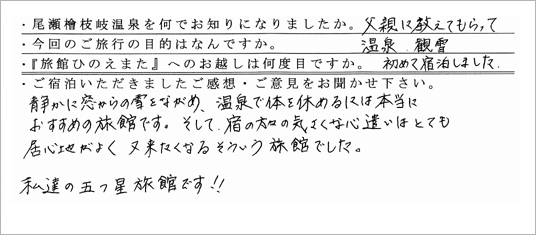 ・尾瀬檜枝岐温泉を何でお知りになりましたか。父親に教えてもらって
・今回のご旅行の目的はなんですか。 温泉 観雪
・『旅館ひのえまた』へのお越しは何度目ですか。 初めて宿泊しました。
・ご宿泊いただきましたご感想・ご意見をお聞かせ下さい。
静かに窓からの雪をながめ、温泉で体を休めるには本当に
おすすめの旅館です。そして、宿の方の気さくな心遣いはとても
居心地がよく 又来たくなるそういう旅館でした。
私達の五つ星旅館です!!